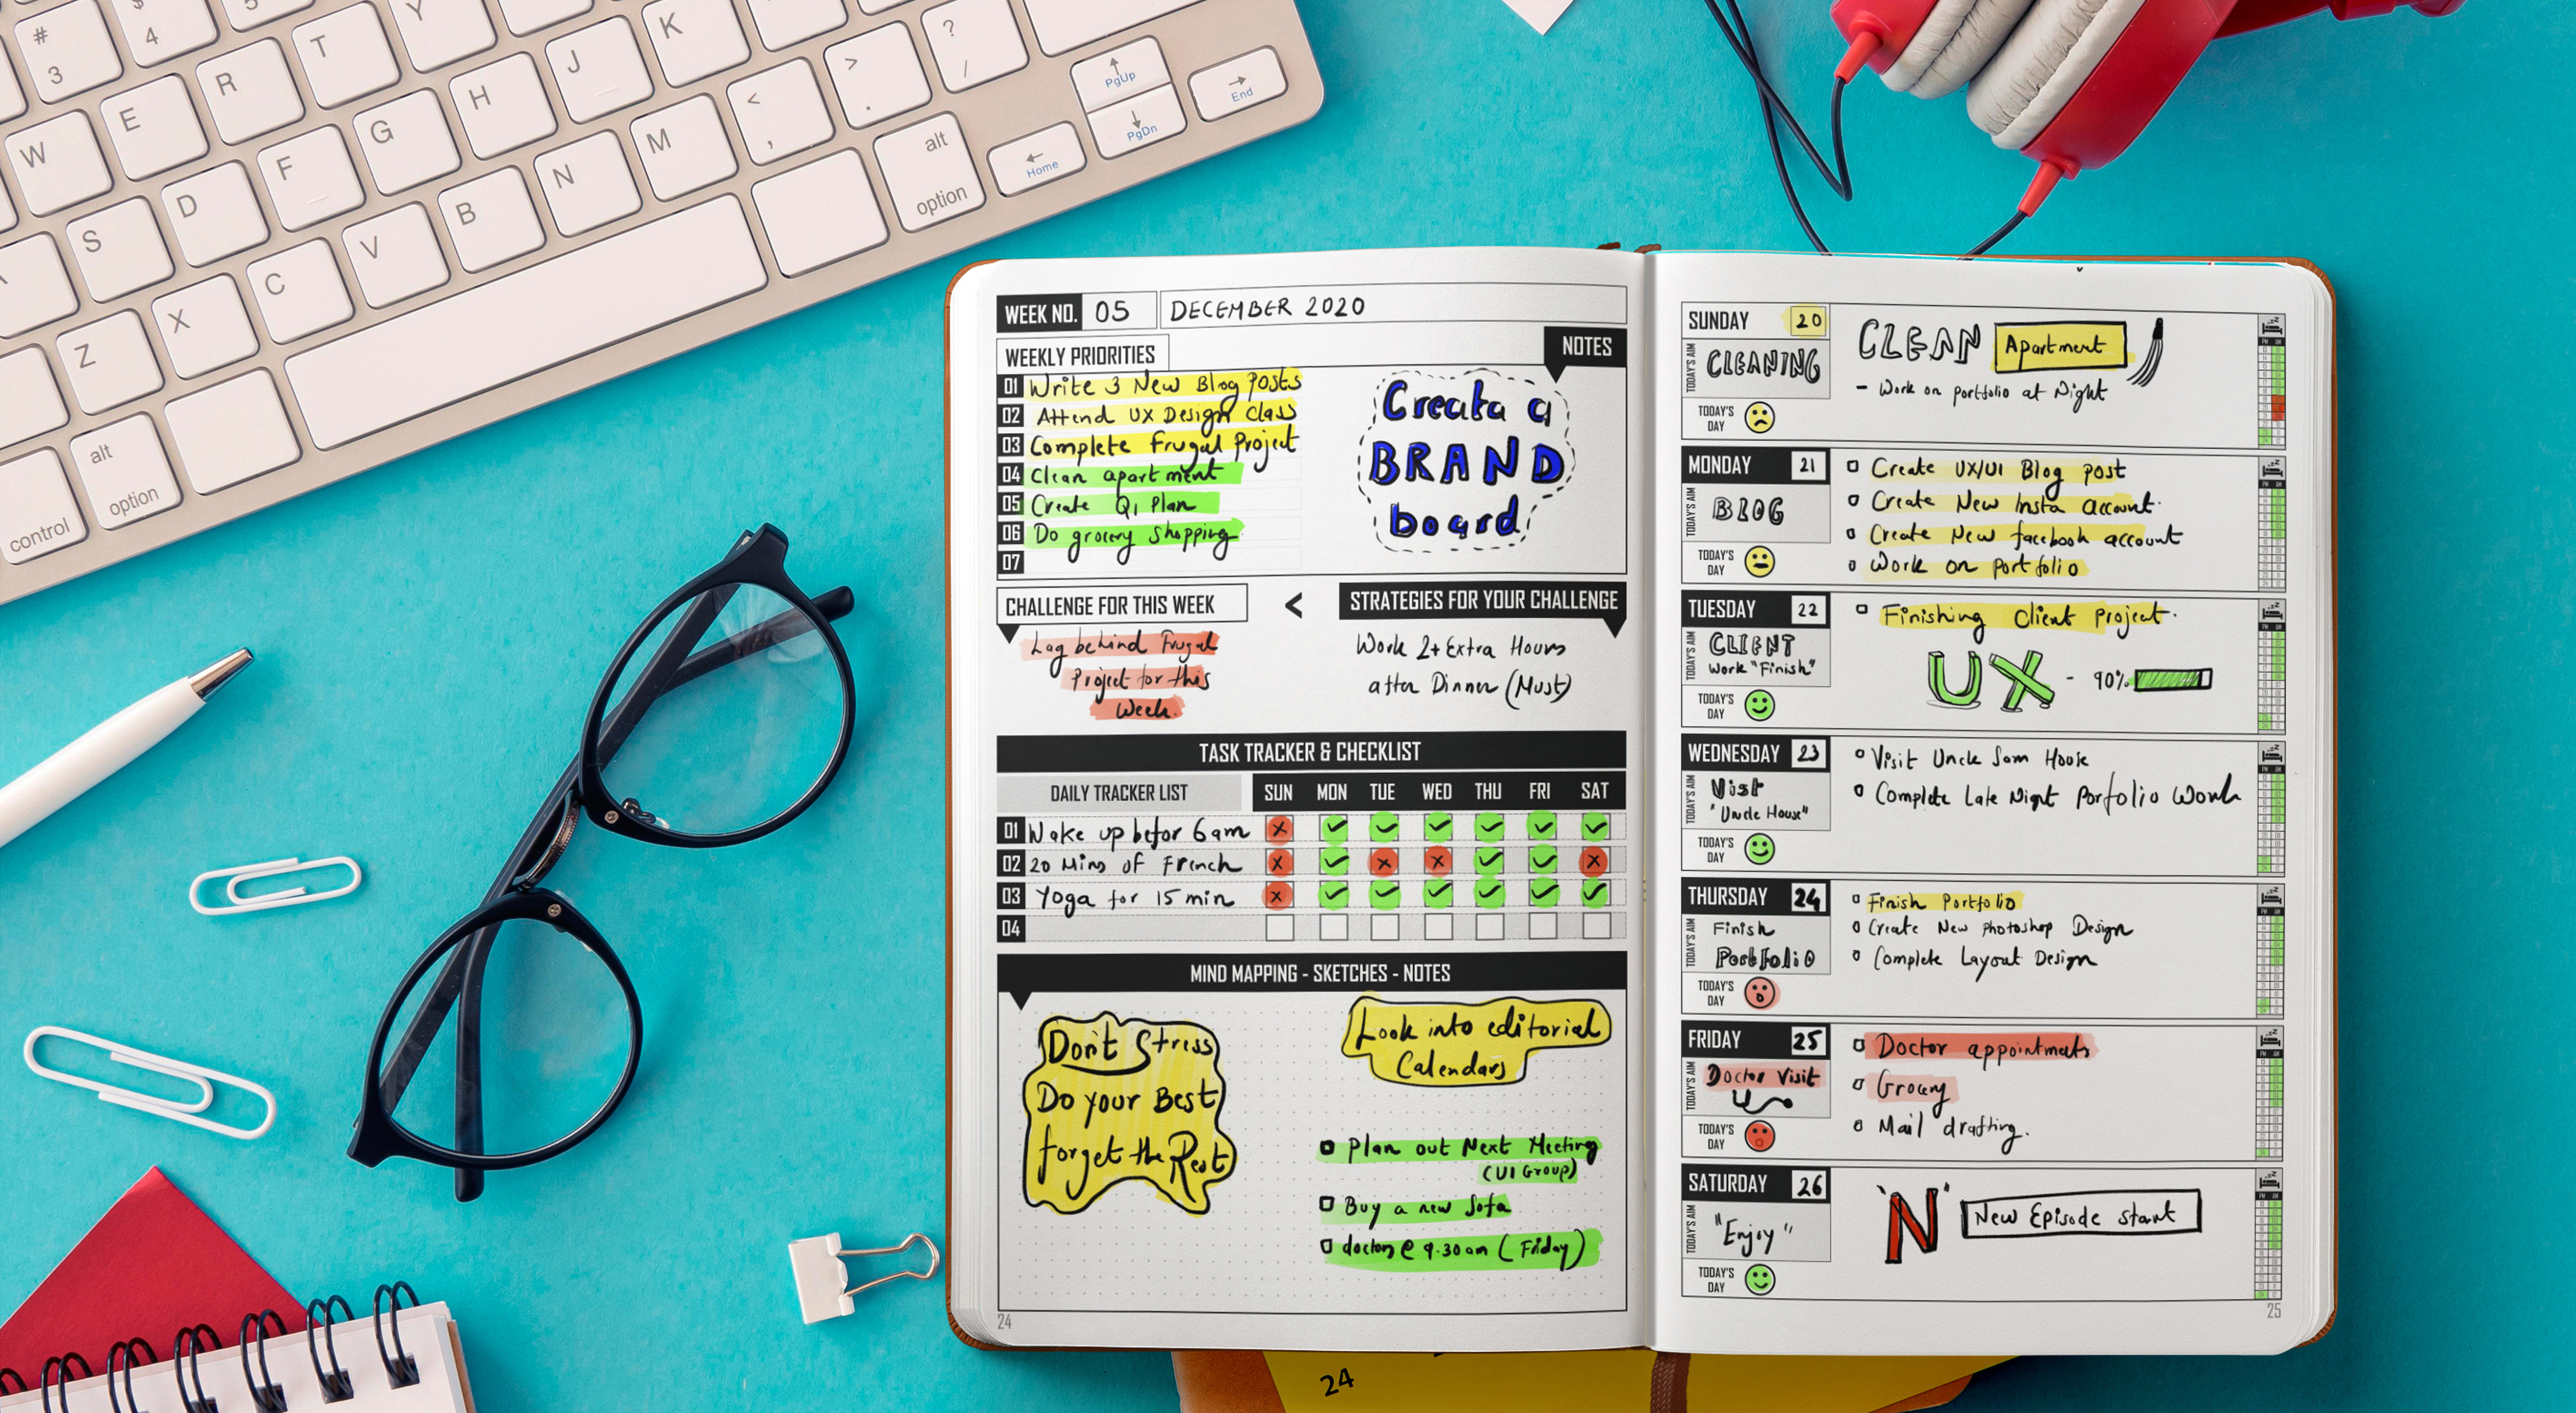 #
3
$
4
5
W
E
R
T
Y
S
D
F
G
H
J
K
Z
X
C
V
B
N
M
<
,
>
.
?
/
alt
option
control
alt
option
Home
PgUp
PgDn
End
WEEK NO. 05 DECEMBER 2020
WEEKLY PRIORITIES
01 Write 3 New Blog Posts
02 Attend UX Design Class
03 Complete Frugal Project
04 Clean apartment
05 Create Q1 Plan
06 Do grocery shopping
07
NOTES
Creata a
BRAND
board
CHALLENGE FOR THIS WEEK
Lag behind Frugal
Project for this
Week.
<
STRATEGIES FOR YOUR CHALLENGE
Work 2+ Extra Hours
after Dinner (Must)
TASK TRACKER & CHECKLIST
DAILY TRACKER LIST SUN MON TUE WED THU FRI SAT
01 Wake up befor 6am
02 20 Mins of French
03 Yoga for 15 min
04
MIND MAPPING - SKETCHES - NOTES
Don't Stress
Do your Best
forget the Rest
Look into editorial
Calendars
Plan out Next Meeting
(UI Group)
Buy a new Sofa
doctors @ 9.30 am (Friday)
24
SUNDAY 20
TODAY'S AIM
CLEANING
TODAY'S
DAY
CLEAN Apartment
- Work on portfolio at Night
MONDAY 21
TODAY'S AIM
BLOG
TODAY'S
DAY
Create UX/UI Blog post
Create New Insta account.
Create New facebook account
Work on portfolio
TUESDAY 22
TODAY'S AIM
CLIENT
Work "Finish"
TODAY'S
DAY
Finishing Client Project.
UX - 90%
WEDNESDAY 23
TODAY'S AIM
Visit
"Uncle House"
TODAY'S
DAY
Visit Uncle Sam House
Complete Late Night Porfolio Work
THURSDAY 24
TODAY'S AIM
Finish
Portfolio
TODAY'S
DAY
Finish Portfolio
Create New Photoshop Design
Complete Layout Design
FRIDAY 25
TODAY'S AIM
Doctor Visit
TODAY'S
DAY
Doctor appointments
Grocery
Mail drafting.
SATURDAY 26
TODAY'S AIM
"Enjoy"
TODAY'S
DAY
'N' New Episode start
25
24